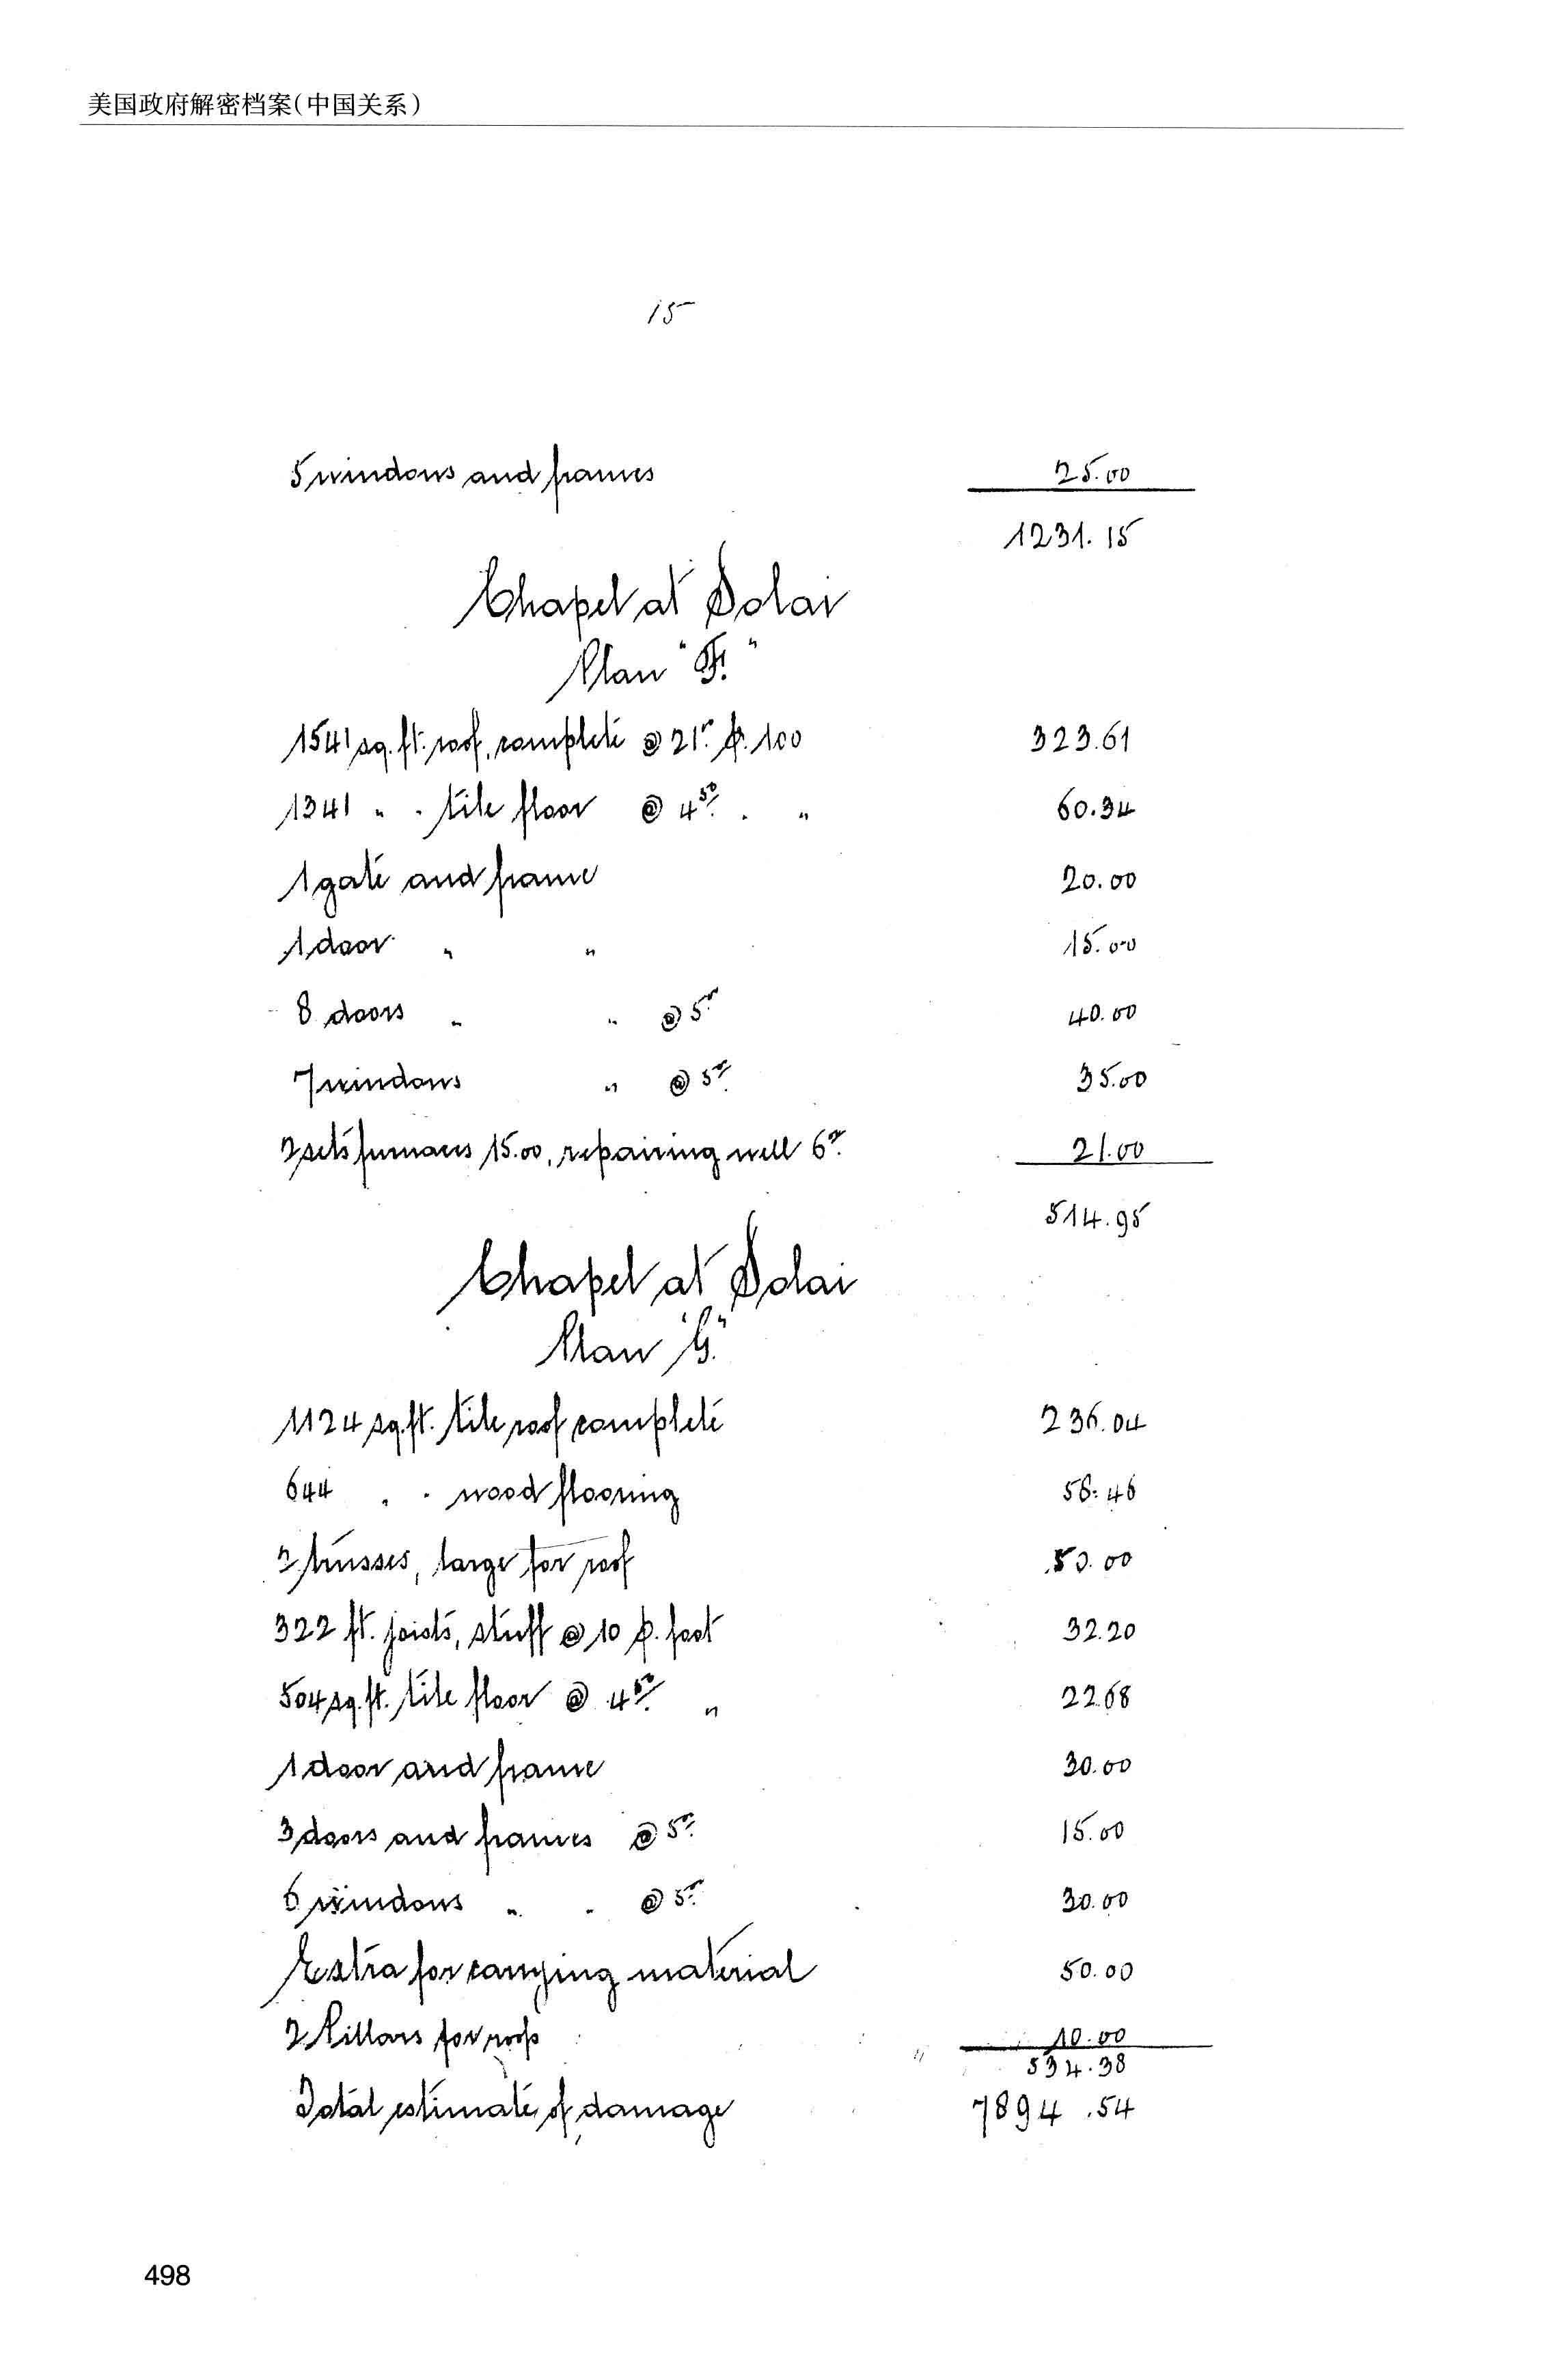 美国政府解密档案(中国关系)
15
5 windows and frames 25.00
1231.15
Chapel at Solai
Plan "F."
1541 sq. ft. roof, complete @ 21.00 p. 100 323.61
1341 " " tile floor @ 4.50 " " 60.34
1 gate and frame 20.00
1 door " " 15.00
8 doors " " @ 5.00 40.00
7 windows " @ 5.00 35.00
2 sets furnaces 15.00, repairing well 6.00 21.00
514.95
Chapel at Solai
Plan "G."
1124 sq. ft. tile roof complete 236.04
644 " " wood flooring 58.46
2 trusses, large for roof 50.00
322 ft. joists, stuff @ 10 p. foot 32.20
504 sq. ft. tile floor @ 4.50 " 22.68
1 door and frame 30.00
3 doors and frames @ 5.00 15.00
6 windows " " @ 5.00 30.00
Extra for carrying material 50.00
2 Pillars for roofs 10.00
534.38
Total estimate of damage 7894.54
498